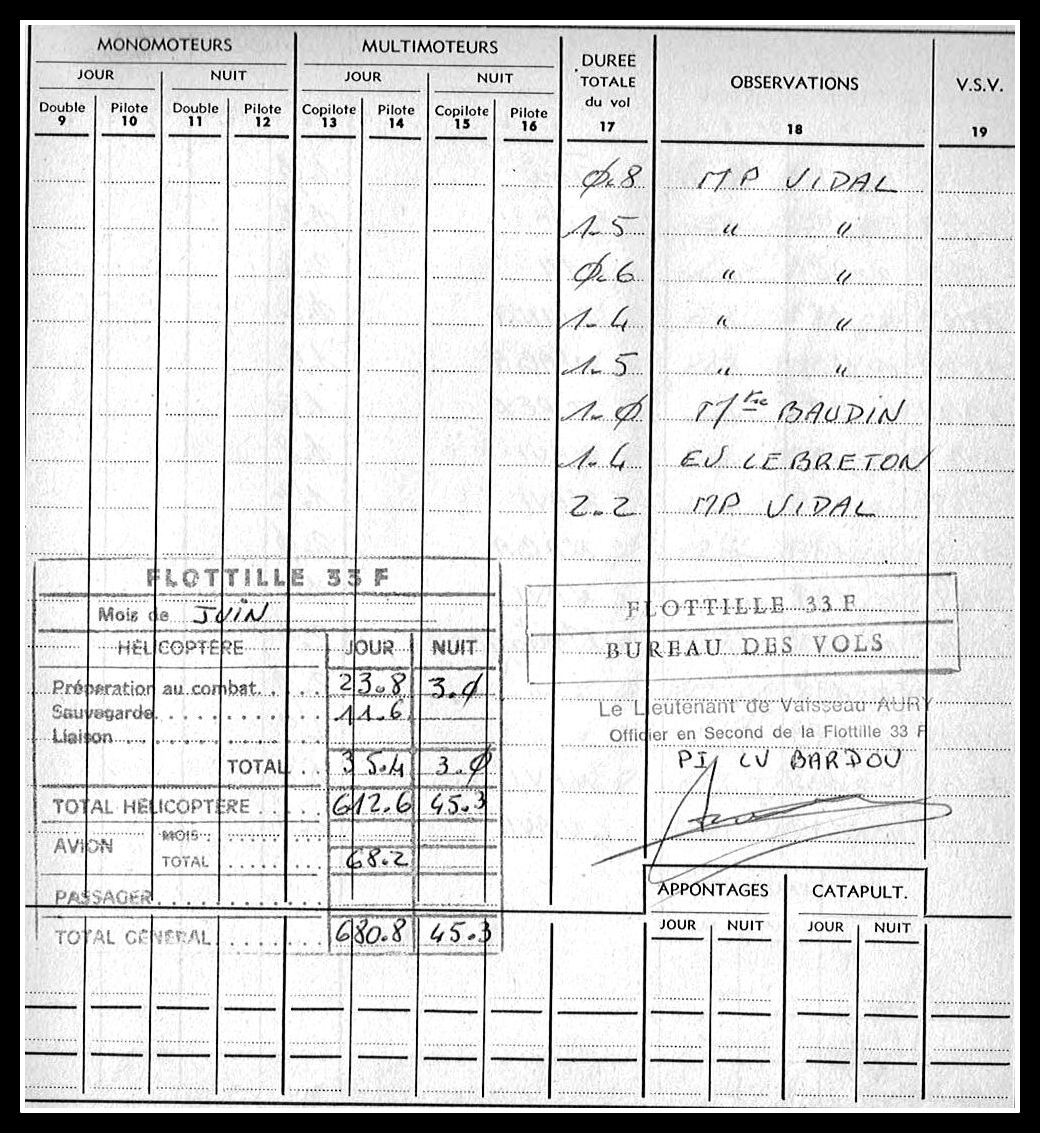 MONOMOTEURS MULTIMOTEURS DUREE TOTALE du vol OBSERVATIONS V.S.V.
JOUR NUIT JOUR NUIT
Double Pilote Double Pilote Copilote Pilote Copilote Pilote
9 10 11 12 13 14 15 16 17 18 19
0.8 MP VIDAL
1.5 " "
0.6 " "
1.4 " "
1.5 " "
1.0 Mtre BAUDIN
1.4 EV LEBRETON
2.2 MP VIDAL
FLOTTILLE 33 F
Mois de JUIN
HÉLICOPTÈRE JOUR NUIT
Préparation au combat..... 23.8 3.0
Sauvegarde........... 11.6
Liaison..............
TOTAL.. 35.4 3.0
TOTAL HÉLICOPTÈRE.... 612.6 45.3
AVION MOIS.......
TOTAL....... 68.2
PASSAGER............
TOTAL GÉNÉRAL....... 680.8 45.3
FLOTTILLE 33 F
BUREAU DES VOLS
Le Lieutenant de Vaisseau AURY
Officier en Second de la Flottille 33 F
PI LV BARDOU
APPONTAGES CATAPULT.
JOUR NUIT JOUR NUIT